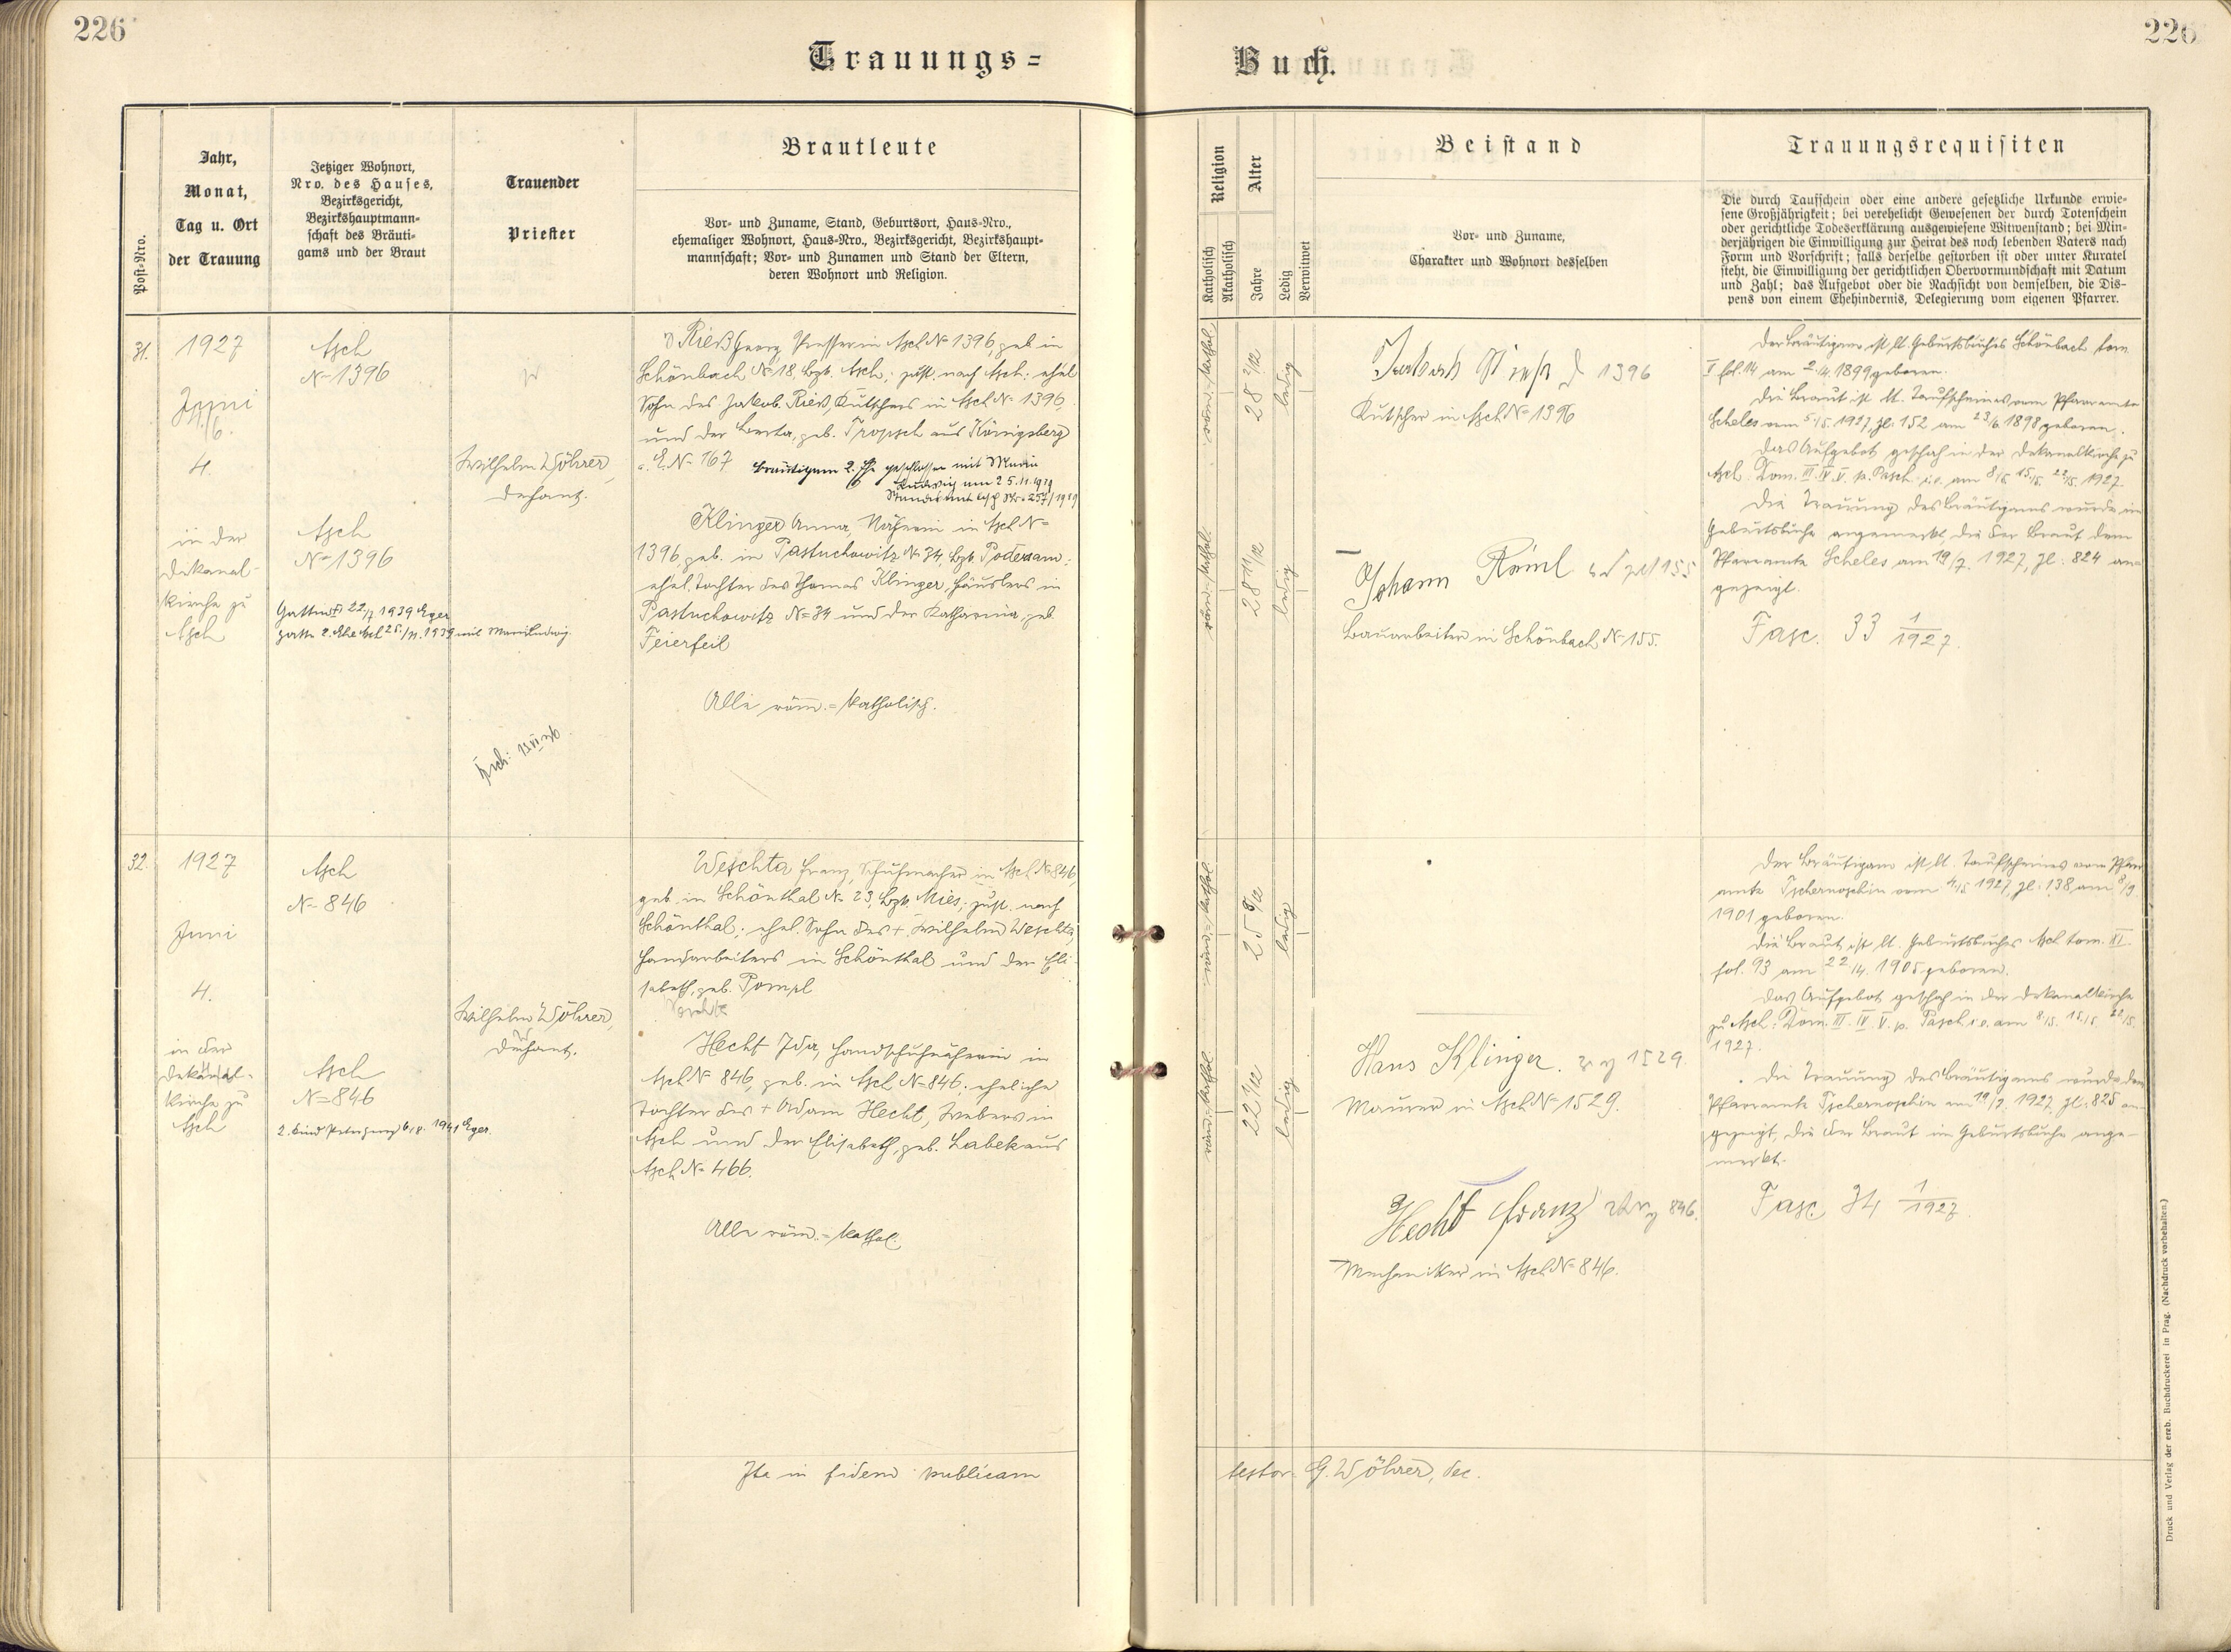 226
226
Trauungs=
Buch.
Post-Nro.
Jahr,
Monat,
Tag u. Ort
der Trauung
Jetziger Wohnort,
Nro. des Hauses,
Bezirksgericht,
Bezirkshauptmann-
schaft des Bräuti-
gams und der Braut
Trauender
Priester
Brautleute
Vor- und Zuname, Stand, Geburtsort, Haus-Nro.,
ehemaliger Wohnort, Haus-Nro., Bezirksgericht, Bezirkshaupt-
mannschaft; Vor- und Zunamen und Stand der Eltern,
deren Wohnort und Religion.
Religion
Katholisch
Akatholisch
Alter
Jahre
Ledig
Verwitwet
Beistand
Vor- und Zuname,
Charakter und Wohnort desselben
Trauungsrequisiten
Die durch Taufschein oder eine andere gesetzliche Urkunde erwie-
sene Großjährigkeit; bei verehelicht Gewesenen der durch Totenschein
oder gerichtliche Todeserklärung ausgewiesene Witwenstand; bei Min-
derjährigen die Einwilligung zur Heirat des noch lebenden Vaters nach
Form und Vorschrift; falls derselbe gestorben ist oder unter Kuratel
steht, die Einwilligung der gerichtlichen Obervormundschaft mit Datum
und Zahl; das Aufgebot oder die Nachsicht von demselben, die Dis-
pens von einem Ehehindernis, Delegierung vom eigenen Pfarrer.
31.
1927
Juni
4.
in der
Dekanal-
kirche zu
Asch
Asch
No 1396
Asch
No 1396
Gattin † 22/7 1939 Eger
2. Ehe Asch 25./11. 1939 mit Marie Ludwig.
Wilhelm Wöhrer,
Dechant.
Rieß Georg, Presser in Asch No 1396, geb. in
Schönbach No 18, Bzk. Asch; zust. nach Asch; ehel.
Sohn des Jakob Rieß, Kutschers in Asch No 1396,
und der Berta, geb. Tropsch aus Königsberg
a. E. No 167 Bräutigam 2. Ehe geschlossen mit Marie
Ludwig am 25.11.1939
Standesamt Asch Nr. 257/1939
Klinger Anna, Näherin in Asch No
1396, geb. in Pastuchowitz No 34, Bzk. Podersam;
ehel. Tochter des Thomas Klinger, Häuslers in
Pastuchowitz No 34 und der Katharina, geb.
Feierfeil
Alle röm.=katholisch.
röm.=kathol.
28 2/12
ledig
röm.=kathol.
28 11/12
ledig
1396
Kutscher in Asch No 1396
Johann Röml
Bauarbeiter in Schönbach No 155.
Der Bräutigam ist lt. Geburtsbuches Schönbach tom.
V fol. 14 am 2./4. 1899 geboren.
Die Braut ist lt. Taufscheines vom Pfarramte
Scheles vom 5/5. 1927, Zl: 152 am 23/6 1898 geboren.
Das Aufgebot geschah in der Dekanalkirche zu
Asch: Dom. III. IV. V. p. Pasch. i.e. am 8/5. 15/5. 22/5. 1927.
Die Trauung des Bräutigams wurde im
Geburtsbuche angemerkt, die der Braut dem
Pfarramte Scheles am 19/7. 1927, Zl: 824 an-
gezeigt.
Fasc. 33 1/1927.
32.
1927
Juni
4.
in der
Dekanal-
kirche zu
Asch
Asch
No 846
Asch
No 846
1941 Eger.
Wilhelm Wöhrer,
Dechant.
Weschta Franz, Schuhmacher in Asch No 846,
geb. in Schönthal No 23, Bzk. Mies; zust. nach
Schönthal; ehel. Sohn des † Wilhelm Weschta,
Handarbeiters in Schönthal und der Eli-
sabeth, geb. Pompl
Hecht Ida, Handschuhnäherin in
Asch No 846, geb. in Asch No 846; eheliche
Tochter des † Adam Hecht, Webers in
Asch und der Elisabeth, geb. Labek aus
Asch No 466.
Alle röm.=kathol.
röm.=kathol.
25 8/12
ledig
röm.=kathol.
22 1/12
ledig
Hans Klinger. 1529.
Maurer in Asch No 1529.
Hecht Franz 846.
Mechaniker in Asch No 846.
Der Bräutigam ist lt. Taufscheines vom Pfarr-
amte Tschernoschin vom 4/5 1927, Zl: 138 am 8/9.
1901 geboren.
Die Braut ist lt. Geburtsbuches Asch tom. XI.
fol. 93 am 22./4. 1905 geboren.
Das Aufgebot geschah in der Dekanalkirche
zu Asch: Dom. III. IV. V. p. Pasch i.e. am 8/5. 15/5. 22/5.
1927.
Die Trauung des Bräutigams wurde dem
Pfarramte Tschernoschin am 19/7. 1927, Zl: 825 an-
gezeigt, die der Braut im Geburtsbuche ange-
merkt.
Fasc. 34 1/1927
Ita in fidem publicam
testor. G. Wöhrer, dec.
Druck und Verlag der erzb. Buchdruckerei in Prag. (Nachdruck vorbehalten.)